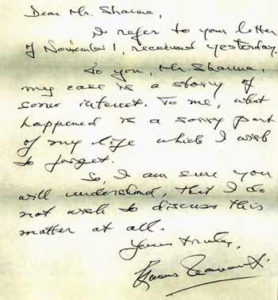 Dear Mr. Sharma,
I refer to your letter
of November 1, received yesterday.
To you, Mr Sharma,
my case is a story of
some interest. To me, what
happened is a sorry part
of my life which I wish
to forget.
So, I am sure you
will understand, that I do
not wish to discuss this
matter at all.
Yours truly,